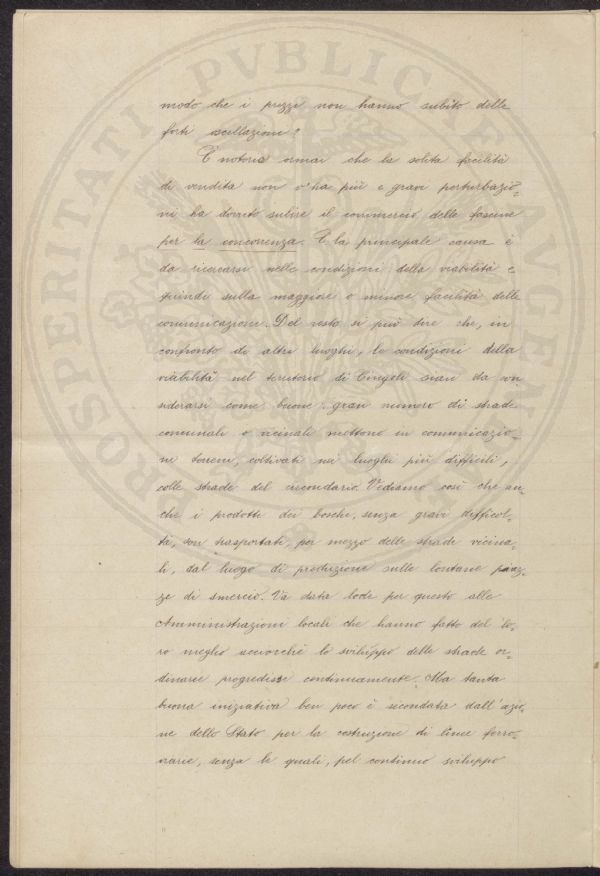 modo che i prezzi non hanno subito delle
forti oscillazioni?
È notorio ormai che la solita facilità
di vendita non v'ha più e gravi perturbazio=
ni ha dovuto subire il commercio delle fascine
per la concorrenza. E la principale causa è
da ricercarsi nelle condizioni della viabilità e
quindi sulla maggiore o minore facilità delle
comunicazione. Del resto si può dire che, in
confronto di altri luoghi, le condizioni della
viabilità nel territorio di Cingoli sian da con
siderarsi come buone: gran numero di strade
comunali o vicinali mettono in comunicazio=
ne terreni, coltivati nei luoghi più difficili,
colle strade del circondario. Vediamo così che an=
che i prodotti dei boschi, senza gravi difficol=
tà, son trasportati, per mezzo delle strade vicina=
li, dal luogo di produzione sulle lontane piaz=
ze di smercio. Va data lode per questo alle
Amministrazioni locali che hanno fatto del lo=
ro meglio acciocchè lo sviluppo delle strade or=
dinarie progredisse continuamente. Ma tanta
buona iniziativa ben poco è secondata dall'azio=
ne dello Stato per la costruzione di linee ferro=
viarie, senza le quali, pel continuo sviluppo
PROSPERITATI PVBLICAE AVGENDAE